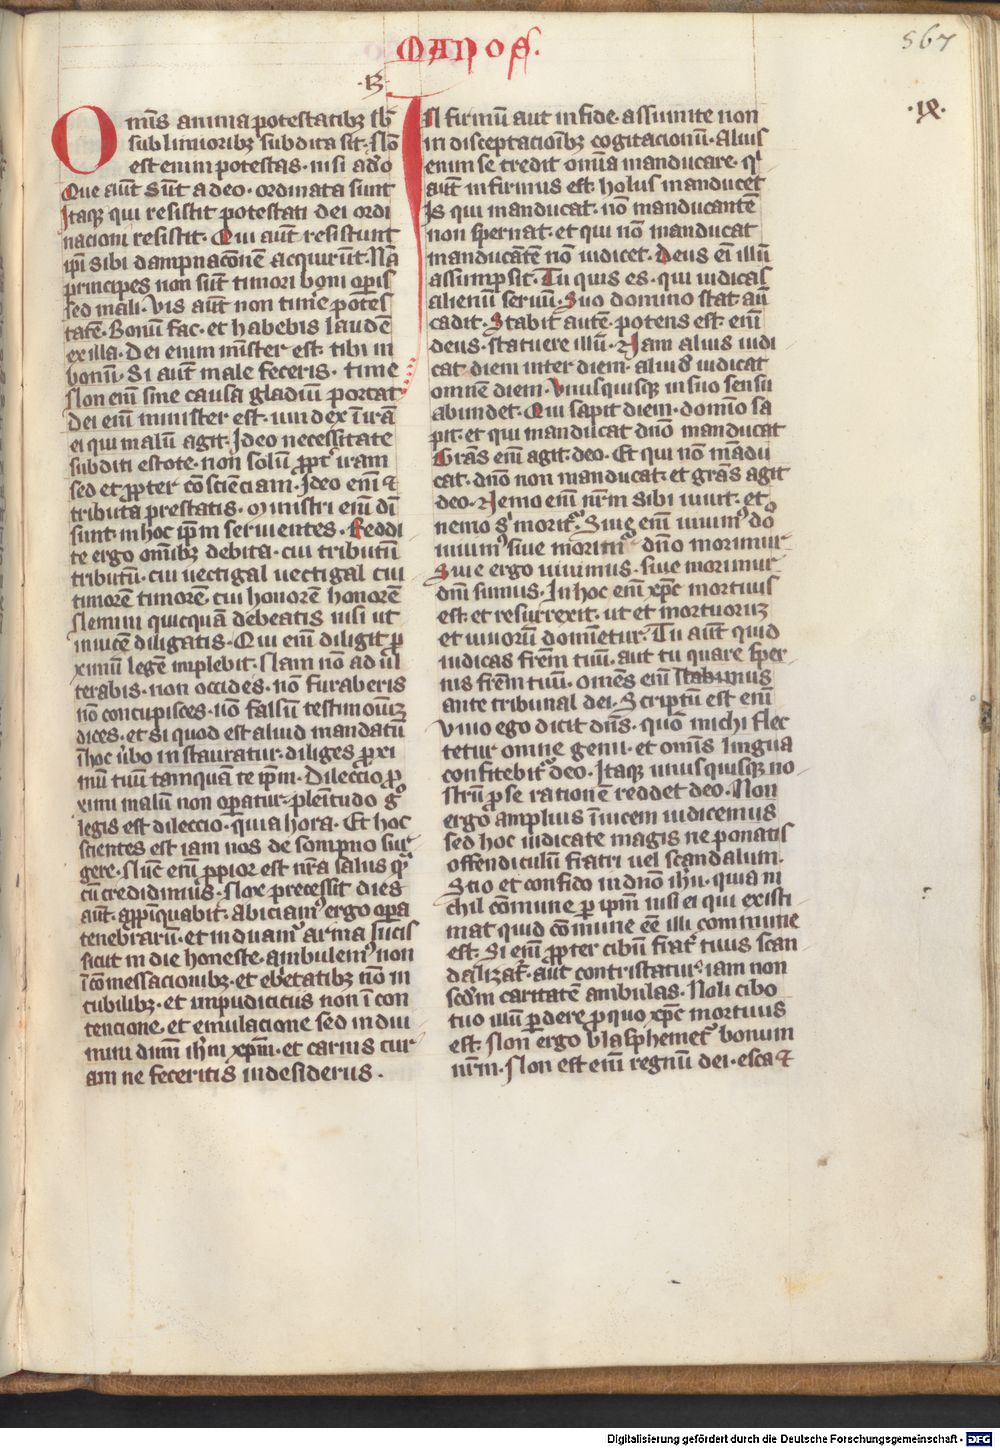 MANOS.
567
.13.
.ix.
Omīs anima potestatibꝫ sb̄
sublimioribꝫ subdita sit. Nō
est enim potestas. nisi a deo
Que aūt sūt a deo. ordinata sunt
Itaqꝫ qui resistit potestati dei ordi
nacioni resistit. Qui aūt resistunt
ip̄i sibi dampnacōnē acqiurūt. Nā
principes non sūt timori boni op̄is
sed mali. Vis aūt non time potes
tatē. Bonū fac. et habebis laudē
ex illa. Dei enim mīster est. tibi in
bonū. Si aūt male feceris. time
Non enī sine causa gladiū portat
dei enī minister est. uindex ī irā
ei qui malū agit. Ideo necessitate
subditi estote. non solū ꝓpt̄ iram
sed et ꝓpter cōsciēciam. Ideo enī et
tributa prestatis. Ministri enī dī
sunt. in hoc ip̄m seruientes. Reddi
te ergo om̄ibꝫ debita. cui tributū
tributū. cui uectigal uectigal cui
timorē timorē. cui honorē honorē
Nemini quicquā debeatis nisi ut
inuicē diligatis. Qui enī diligit ꝓ
ximū legē implebit. Nam nō adul
terabis. non occides. nō furaberis
nō concupisces. nō falsū testimoniū
dices. et si quod est aliud mandatū
ī hoc ūbo instauratur. diliges ꝓxi
mū tuū tamquā te ip̄m. Dileccio ꝓ
ximi malū non oꝑatur. plenitudo gͦ
legis est dileccio. quia hora. Et hoc
scientes est iam nos de sompno sur
gere. Nūc enī ꝓpior est nr̄a salus qͣ
cū credidimus. Nox precessit dies
aūt. aꝓpīquabit. abiciamꝰ ergo oꝑa
tenebrarū. et induamꝰ arma lucis
sicut in die honeste. ambulemꝰ non
ī cōmessacionibꝫ. et ebrietatibꝫ nō in
cubilibꝫ. et impudicitiis non ī con
tencione. et emulacione sed indui
mini dūm ih̄m xp̄m. et carnis cur
am ne feceritis in desideriis.
Infirmū aut in fide assumite non
in disceptacioībꝫ cogitacionū. Alius
enim se credit omīa manducare. qͥ
aūt infirmus est. holus manducet
Is qui manducat. nō manducantē
non spernat. et qui nō manducat
manducātē nō iudicet. Deus eī illū
assumpsit. Tu quis es. qui iudicas
alienū seruū. Suo domino stat aū
cadit. Stabit autē. potens est enī
deus. statuere illū. Nam alius iudi
cat diem inter diem. aliuꝰ iudicat
omnē diem. Unusquisqꝫ in suo sensu
abundet. Qui sapit diem. domino sa
pit. et qui manducat dn̄o manducat
Gr̄as enī agit. deo. Et qui nō mādu
cat. dn̄o non manducat. et gr̄as agit
deo. Nemo enī nr̄m sibi uiuit. et
nemo sͥ moritͬ. Siue enī uiuimꝰ dō
uiuimꝰ siue morimͬ dn̄o morimur
Siue ergo uiuimus. siue morimur
dn̄i sumus. In hoc enī xp̄c mortuus
est. et resurrexit. ut et mortuorū
et uiuorū domietur. Tu aūt quid
iudicas fr̄em tuū. aut tu quare sper
nis fr̄em tuū. omēs enī stabimus
ante tribunal dei. Scriptū est enī
Viuo ego dicit dn̄s. quō michi flec
tetur omne genu. et omīs lingua
confitebitͬ deo. Itaqꝫ unusquisqꝫ no
strū ꝓ se rationē reddet deo. Non
ergo amplius īuicem iudicemus
sed hoc iudicate magis ne ponatis
offendiculū fratri uel scandalum.
Scio et confido in dn̄o ih̄u. quia ni
chil cōmune ꝑ ip̄m nisi ei qui existi
mat quid cōmune eē illi commune
est. Si enī ꝓpter cibū frat̄ tuus scan
dalizat̄. aut contristaturͬ. iam non
scd̄m caritatē ambulas. Noli cibo
tuo illū ꝑdere ꝓ quo xp̄c mortuus
est. Non ergo blasphemetͬ bonum
nr̄m. Non est enī regnū dei. esca et
Digitalisierung gefördert durch die Deutsche Forschungsgemeinschaft - DFG